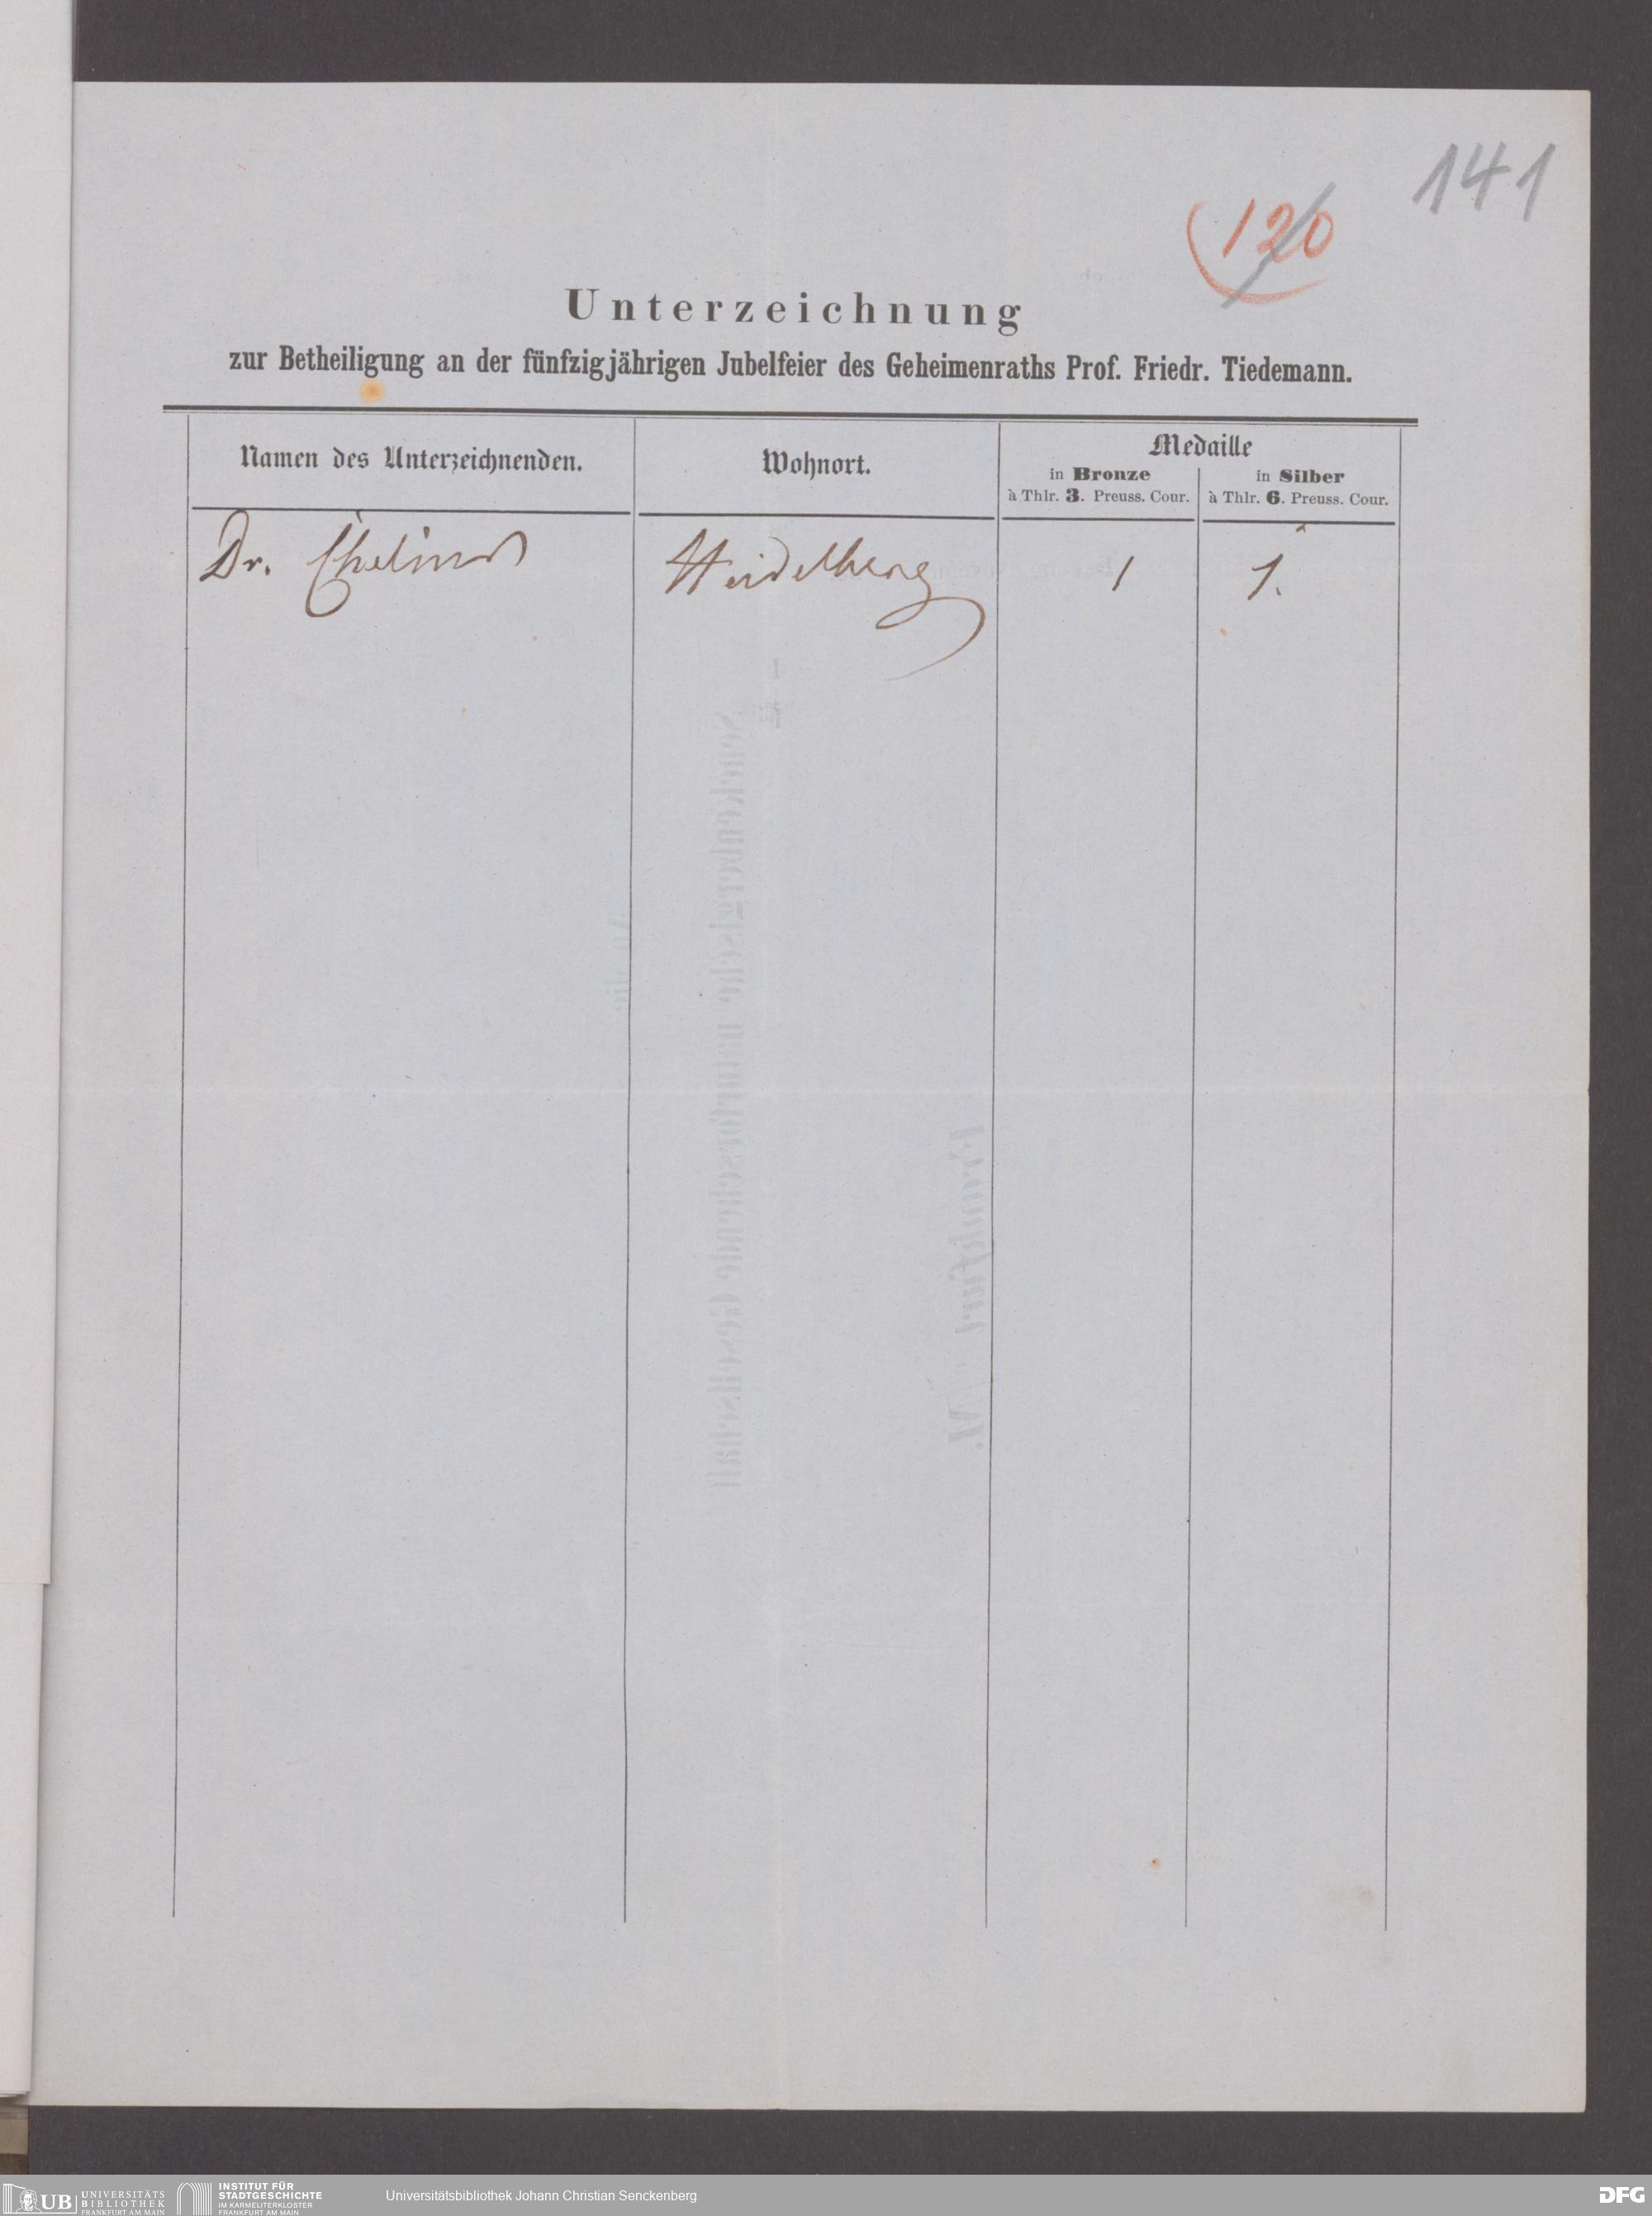 141
120
Unterzeichnung
zur Betheiligung an der fünfzigjährigen Jubelfeier des Geheimenraths Prof. Friedr. Tiedemann.
Namen des Unterzeichnenden.
Wohnort.
Medaille
in Bronze
à Thlr. 3. Preuss. Cour.
in Silber
à Thlr. 6. Preuss. Cour.
Dr. Chelius
Heidelberg
1
1.
Senckenbergische naturforschende Gesellschaft
Frankfurt a. M.
UB UNIVERSITÄTS
BIBLIOTHEK
FRANKFURT AM MAIN
INSTITUT FÜR
STADTGESCHICHTE
IM KARMELITERKLOSTER
FRANKFURT AM MAIN
Universitätsbibliothek Johann Christian Senckenberg
DFG